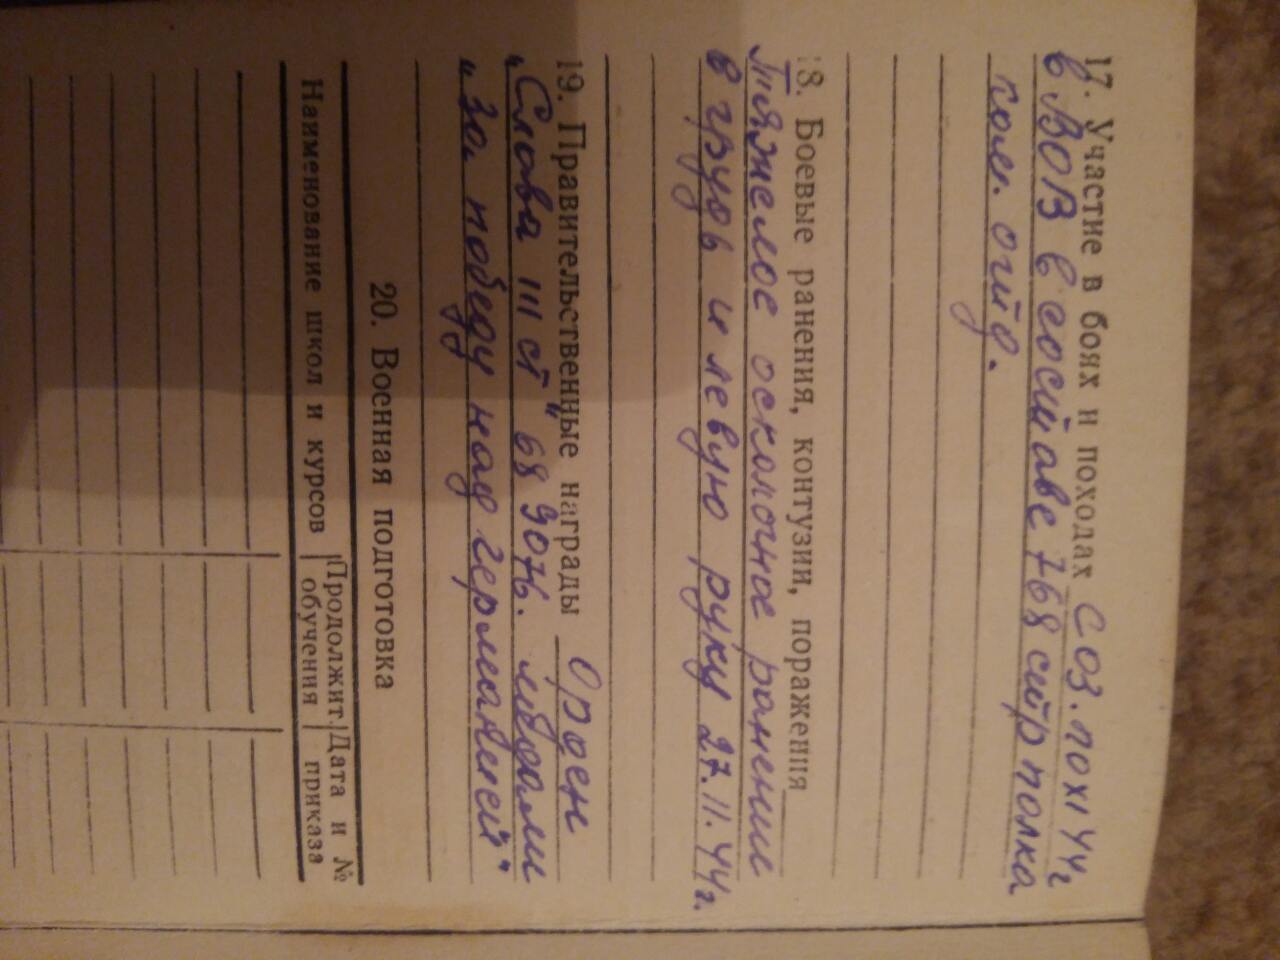 17. Участие в боях и походах С 03. по XI 44 г
в ВОВ в составе 768 стр полка
ком. отд.
18. Боевые ранения, контузии, поражения
Тяжелое осколочное ранение
в грудь и левую руку 27.11.44г.
19. Правительственные награды Орден
„Слава III ст" 689076. медали
„За победу над германией"
20. Военная подготовка
Наименование школ и курсов | Продолжит. обучения | Дата и № приказа